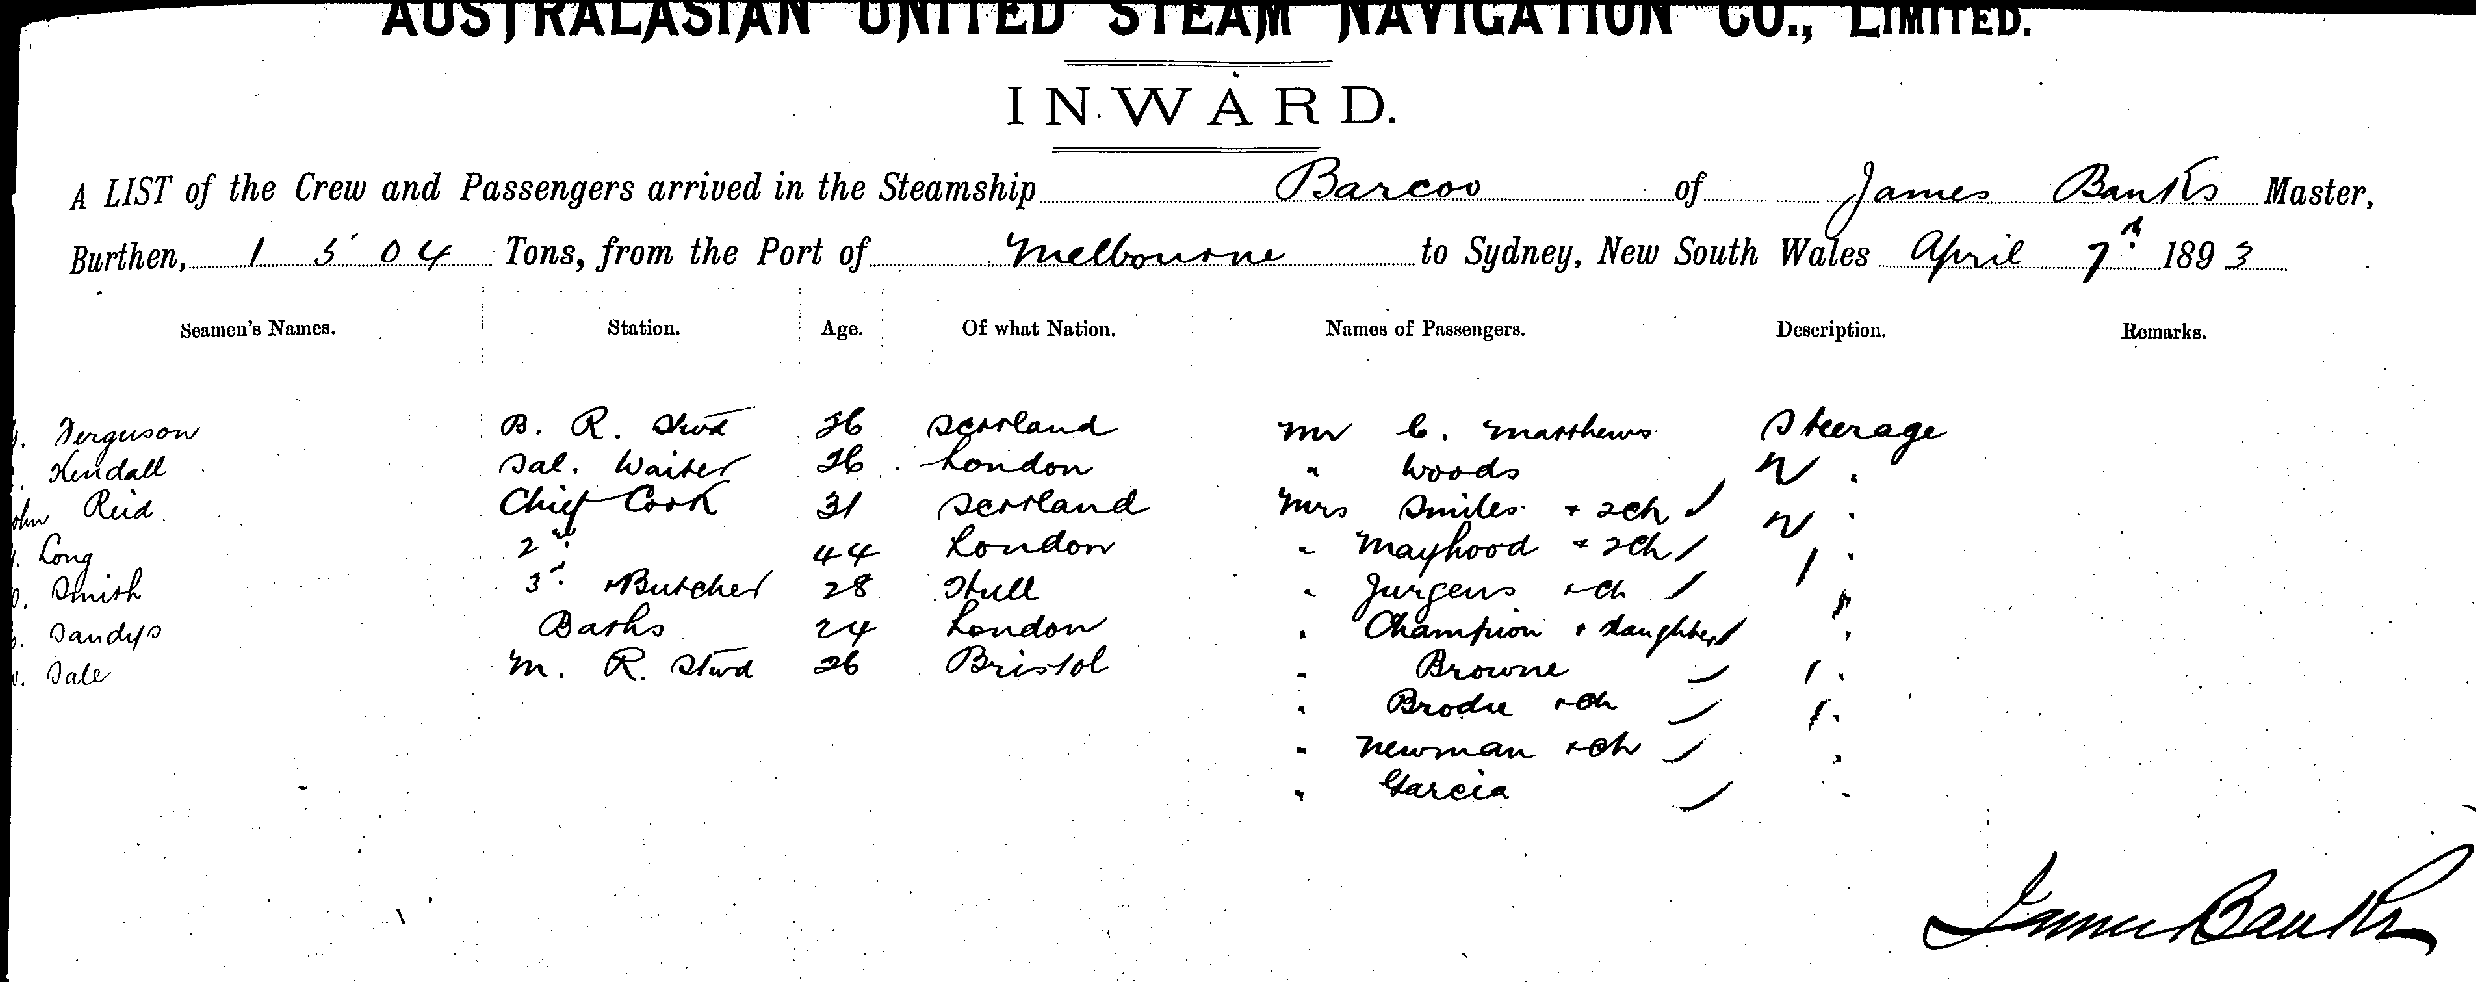 AUSTRALASIAN UNITED STEAM NAVIGATION CO., LIMITED.
INWARD.
A LIST of the Crew and Passengers arrived in the Steamship Barcoo of James Banks Master,
Burthen, 1504 Tons, from the Port of Melbourne to Sydney, New South Wales April 7th 1893
Seamen's Names. Station. Age. Of what Nation. Names of Passengers. Description. Remarks.
Ferguson B. R. Stwd 26 Scotland Mr C. Matthews Steerage
Kendall Sal. Waiter 26 London " Woods "
John Reid Chief Cook 31 Scotland Mrs Smiles + 2ch "
Long 2nd " 44 London " Mayhood + 2ch "
Smith 3rd " + Butcher 28 Hull " Jurgens + ch "
Sandys Baths 24 London " Champion + daughter "
Sale M. R. Stwd 26 Bristol " Browne "
" Brodie + ch "
" Newman + ch "
" Garcia "
James Banks